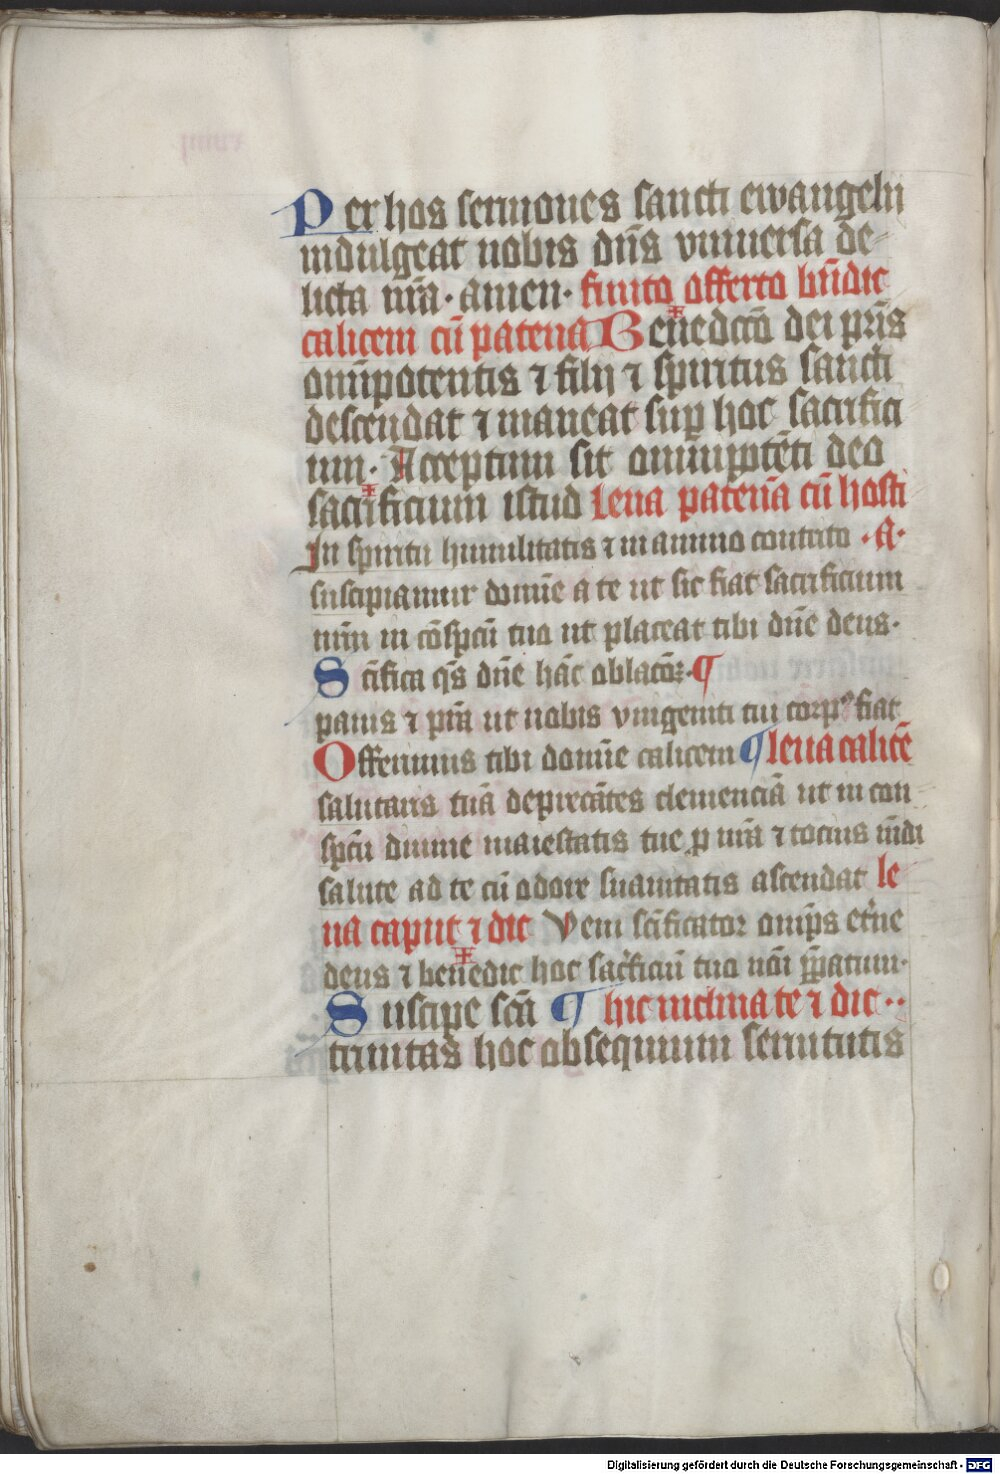 Per hos sermones sancti ewangelii
indulgeat nobis dn̄s vniuersa de-
licta nr̄a · amen · finito offerto bn̄dic
calicem cū patena Benedctō dei pr̄is
omīpotentis ⁊ filij ⁊ spiritus sancti
descendat ⁊ maneat sup̱ hoc sacrifici
um · Acceptum sit omnip̱otēti deo
sacrificium istud leua patenā cū hosti
In spiritu humilitatis ⁊ in animo contrito · A ·
suscipiamur domīe a te ut sic fiat sacrificium
nr̄m in cōsp̱cū tuo ut placeat tibi dn̄e deus ·
Scīfica qs̄ dn̄e hāc oblacōꝫ · ¶
panis ⁊ pr̄ia ut nobis vnigeniti tui corpꝰ fiat
Offerimus tibi domīe calicem ¶ leua calicē
salutaris tuā deprecātes clemenciā ut in con
sp̱cū diuine maiestatis tue p̱ nr̄a ⁊ tocius mūdi
salute ad te cū odore suauitatis ascendat le
ua caput ⁊ dic Veni scīficator omīps̄ etn̄e
deus ⁊ benedic hoc sac̄ficiū tuo nōi p̄paratum ·
Suscipe scā ¶ hic inclina te ⁊ dic · ·
trinitas hoc obsequium seruitutis
Digitalisierung gefördert durch die Deutsche Forschungsgemeinschaft - DFG